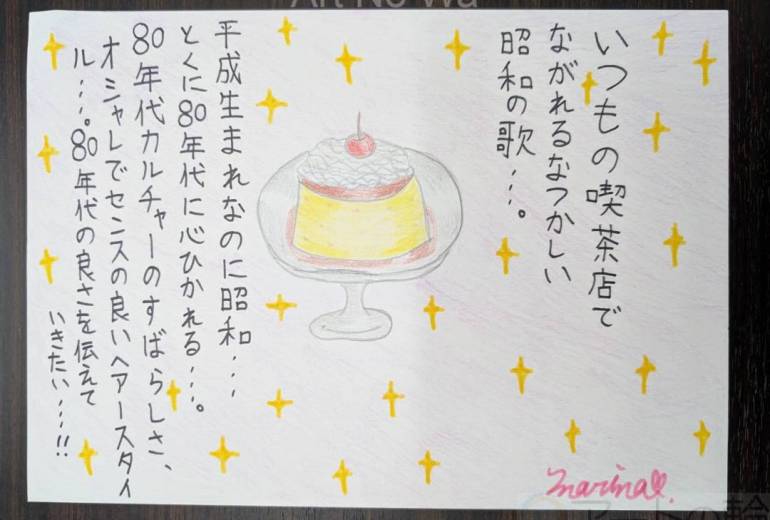 Art No Wa
いつもの喫茶店で
ながれるなつかしい
昭和の歌…。
平成生まれなのに昭和…
とくに80年代に心ひかれる…。
80年代カルチャーのすばらしさ、
オシャレでセンスの良いヘアースタイ
ル…。80年代の良さを伝えて
いきたい…!!
marina
アートの輪